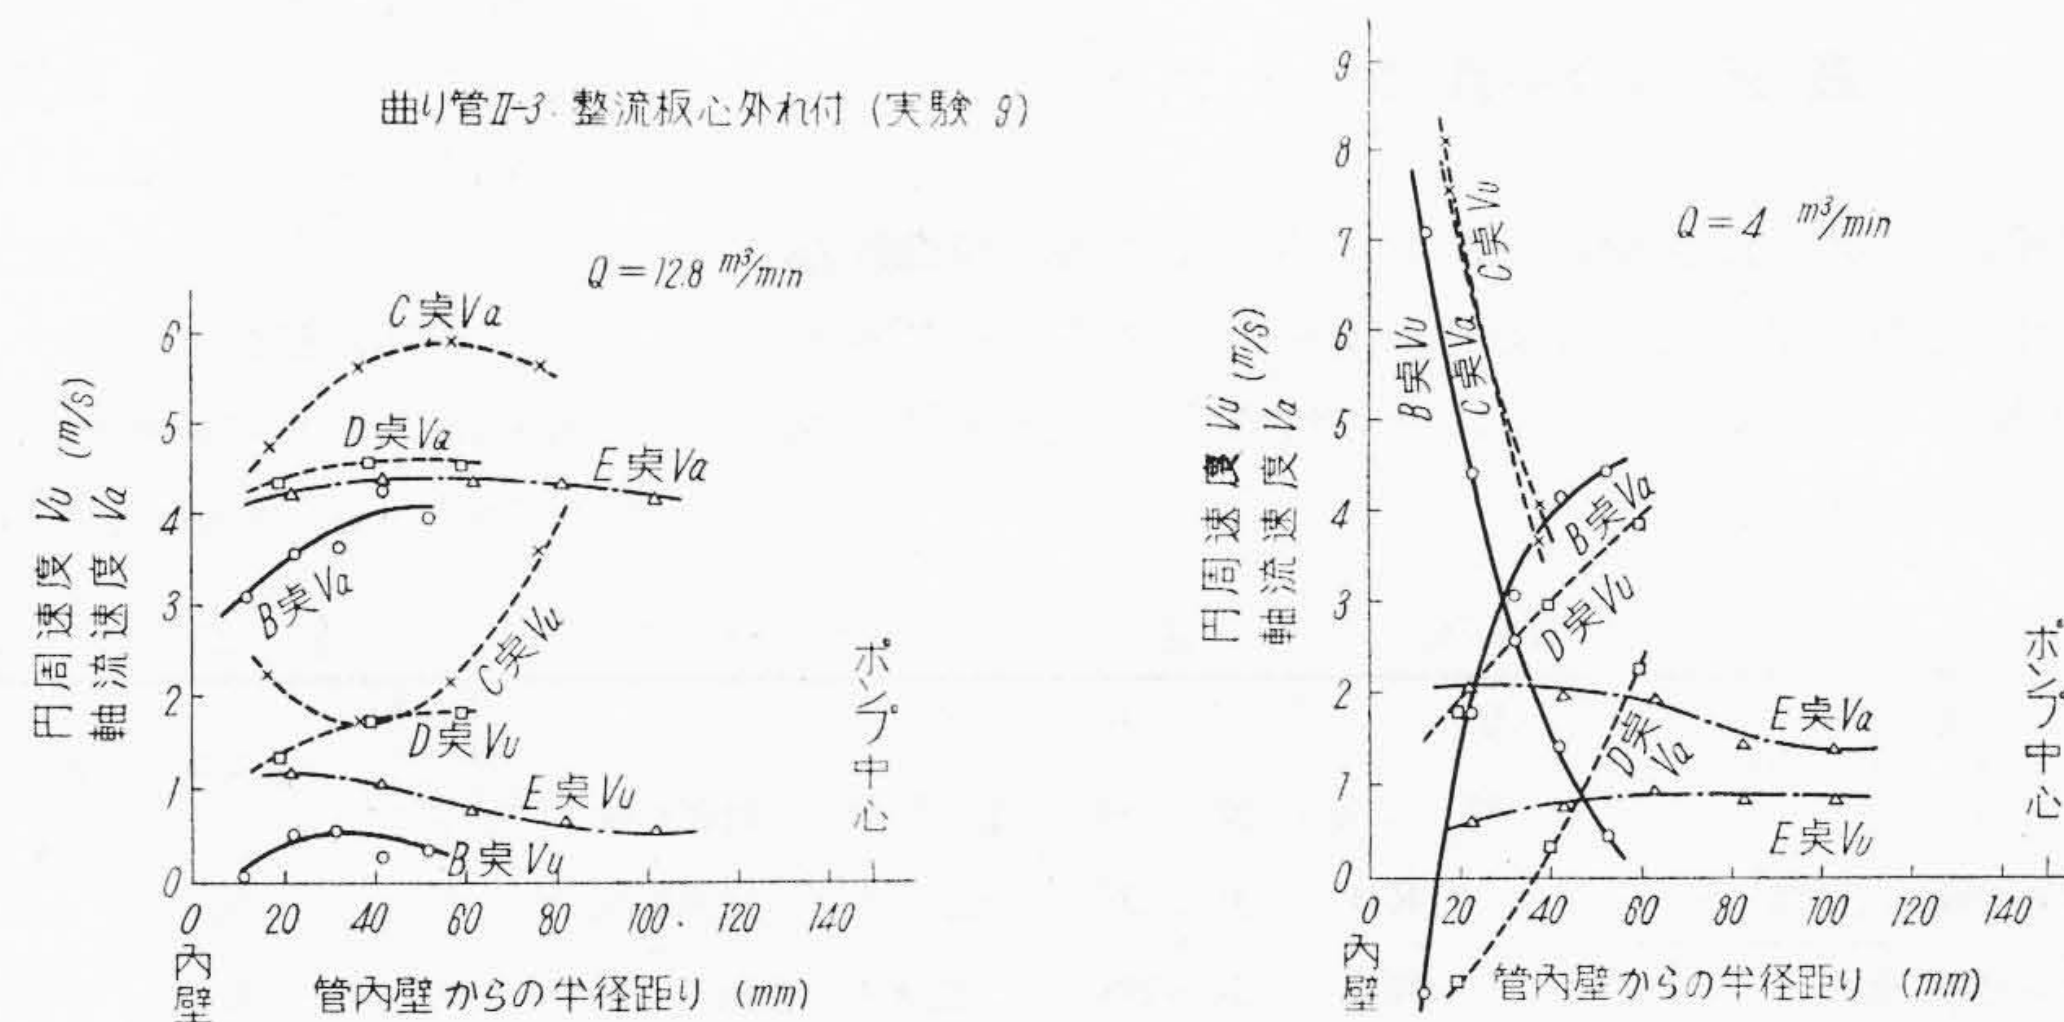 曲り管II-3. 整流板心外れ付 (実験 9)
Q = 12.8 m³/min
円周速度 Vu (m/s)
軸流速度 Va
6
5
4
3
2
1
0
C点Va
D点Va
E点Va
B点Va
C点Vu
D点Vu
E点Vu
B点Vu
ポンプ中心
0 20 40 60 80 100 120 140
内壁
管内壁からの半径距り (mm)
Q = 4 m³/min
円周速度 Vu (m/s)
軸流速度 Va
9
8
7
6
5
4
3
2
1
0
C点Vu
B点Vu
C点Va
B点Va
D点Vu
E点Va
D点Va
E点Vu
ポンプ中心
0 20 40 60 80 100 120 140
内壁
管内壁からの半径距り (mm)